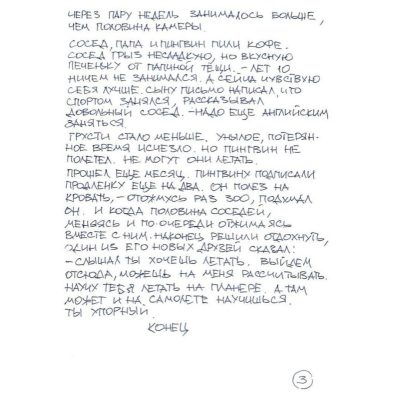 ЧЕРЕЗ ПАРУ НЕДЕЛЬ ЗАНИМАЛОСЬ БОЛЬШЕ,
ЧЕМ ПОЛОВИНА КАМЕРЫ.
СОСЕД, ПАПА И ПИНГВИН ПИЛИ КОФЕ.
СОСЕД ГРЫЗ НЕСЛАДКУЮ, НО ВКУСНУЮ
ПЕЧЕНЬКУ ОТ ПАПИНОЙ ТЁЩИ. – ЛЕТ 10
НИЧЕМ НЕ ЗАНИМАЛСЯ. А СЕЙЧАС ЧУВСТВУЮ
СЕБЯ ЛУЧШЕ. СЫНУ ПИСЬМО НАПИСАЛ, ЧТО
СПОРТОМ ЗАНЯЛСЯ, РАССКАЗЫВАЛ
ДОВОЛЬНЫЙ СОСЕД. – НАДО ЕЩЕ АНГЛИЙСКИМ
ЗАНЯТЬСЯ
ГРУСТИ СТАЛО МЕНЬШЕ. УНЫЛОЕ, ПОТЕРЯН-
НОЕ ВРЕМЯ ИСЧЕЗЛО. НО ПИНГВИН НЕ
ПОЛЕТЕЛ. НЕ МОГУТ ОНИ ЛЕТАТЬ.
ПРОШЕЛ ЕЩЕ МЕСЯЦ. ПИНГВИНУ ПОДПИСАЛИ
ПРОДЛЕНКУ ЕЩЕ НА ДВА. ОН ПОЛЕЗ НА
КРОВАТЬ, – ОТОЖМУСЬ РАЗ 300, ПОДУМАЛ
ОН. И КОГДА ПОЛОВИНА СОСЕДЕЙ,
МЕНЯЯСЬ И ПО ОЧЕРЕДИ ОТЖИМАЯСЬ
ВМЕСТЕ С НИМ. НАКОНЕЦ РЕШИЛИ ОТДОХНУТЬ,
ОДИН ИЗ ЕГО НОВЫХ ДРУЗЕЙ СКАЗАЛ:
– СЛЫШАЛ ТЫ ХОЧЕШЬ ЛЕТАТЬ. ВЫЙДЕМ
ОТСЮДА, МОЖЕШЬ НА МЕНЯ РАССЧИТЫВАТЬ.
НАУЧУ ТЕБЯ ЛЕТАТЬ НА ПЛАНЕРЕ. А ТАМ
МОЖЕТ И НА САМОЛЕТЕ НАУЧИШЬСЯ.
ТЫ УПОРНЫЙ.
КОНЕЦ
3